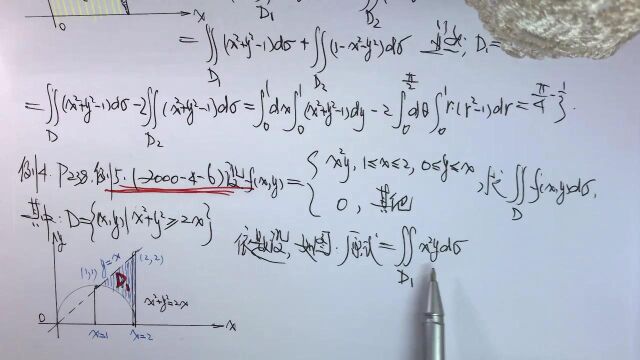 0 x D₁ D₂
= ∬_{D₁} (x²+y²-1)dσ + ∬_{D₂} (1-x²-y²)dσ D₁=
= ∬_D (x²+y²-1)dσ - 2∬_{D₂} (x²+y²-1)dσ = ∫₀¹ dx ∫₀¹ (x²+y²-1)dy - 2∫₀^{π/2} dθ ∫₀¹ r·(r²-1)dr = π/4 - 1/3.
例4. P238. 例15. (-2000-4-6) 设 f(x,y) = { x²y, 1≤x≤2, 0≤y≤x, 0, 其他 , 求 ∬_D f(x,y)dσ,
其中: D={(x,y)|x²+y²≥2x}
原式 = ∬_{D₁} x²y dσ
y y=x (1,1) (2,2) D₁ x²+y²=2x
0 x=1 x=2 x